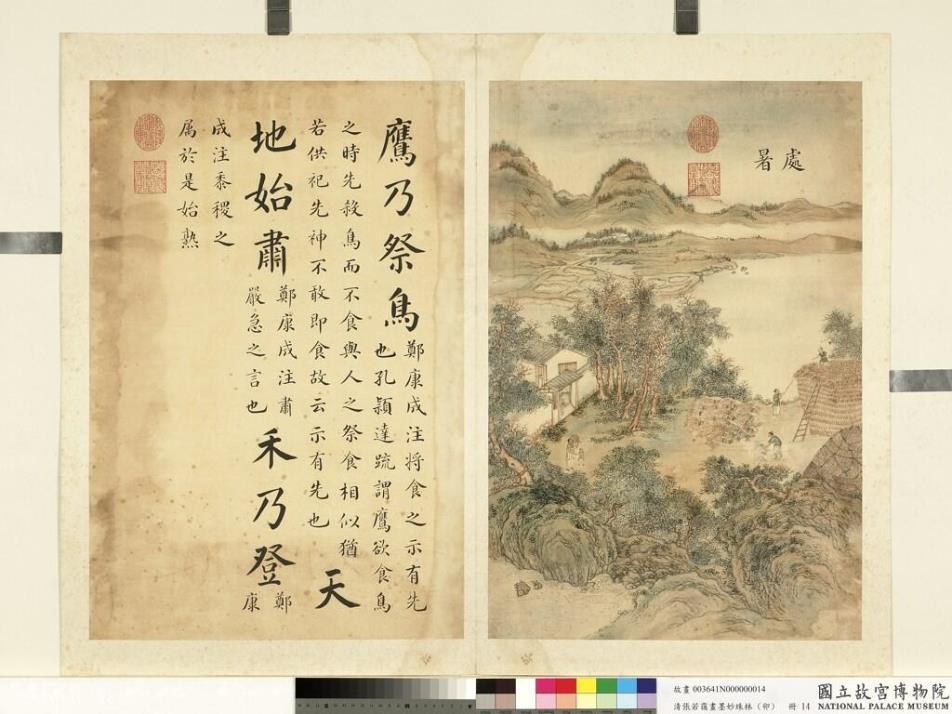 處暑
鷹乃祭鳥
鄭康成注將食之示有先
也孔穎達疏謂鷹欲食鳥
之時先殺鳥而不食與人之祭食相似猶
若供祀先神不敢即食故云示有先也
天
地始肅
鄭康成注肅
嚴急之言也
禾乃登
鄭
康
成注黍稷之
属於是始熟
故畫 003641N000000014
清張若靄畫墨妙珠林（卯） 冊 14
國立故宮博物院
NATIONAL PALACE MUSEUM